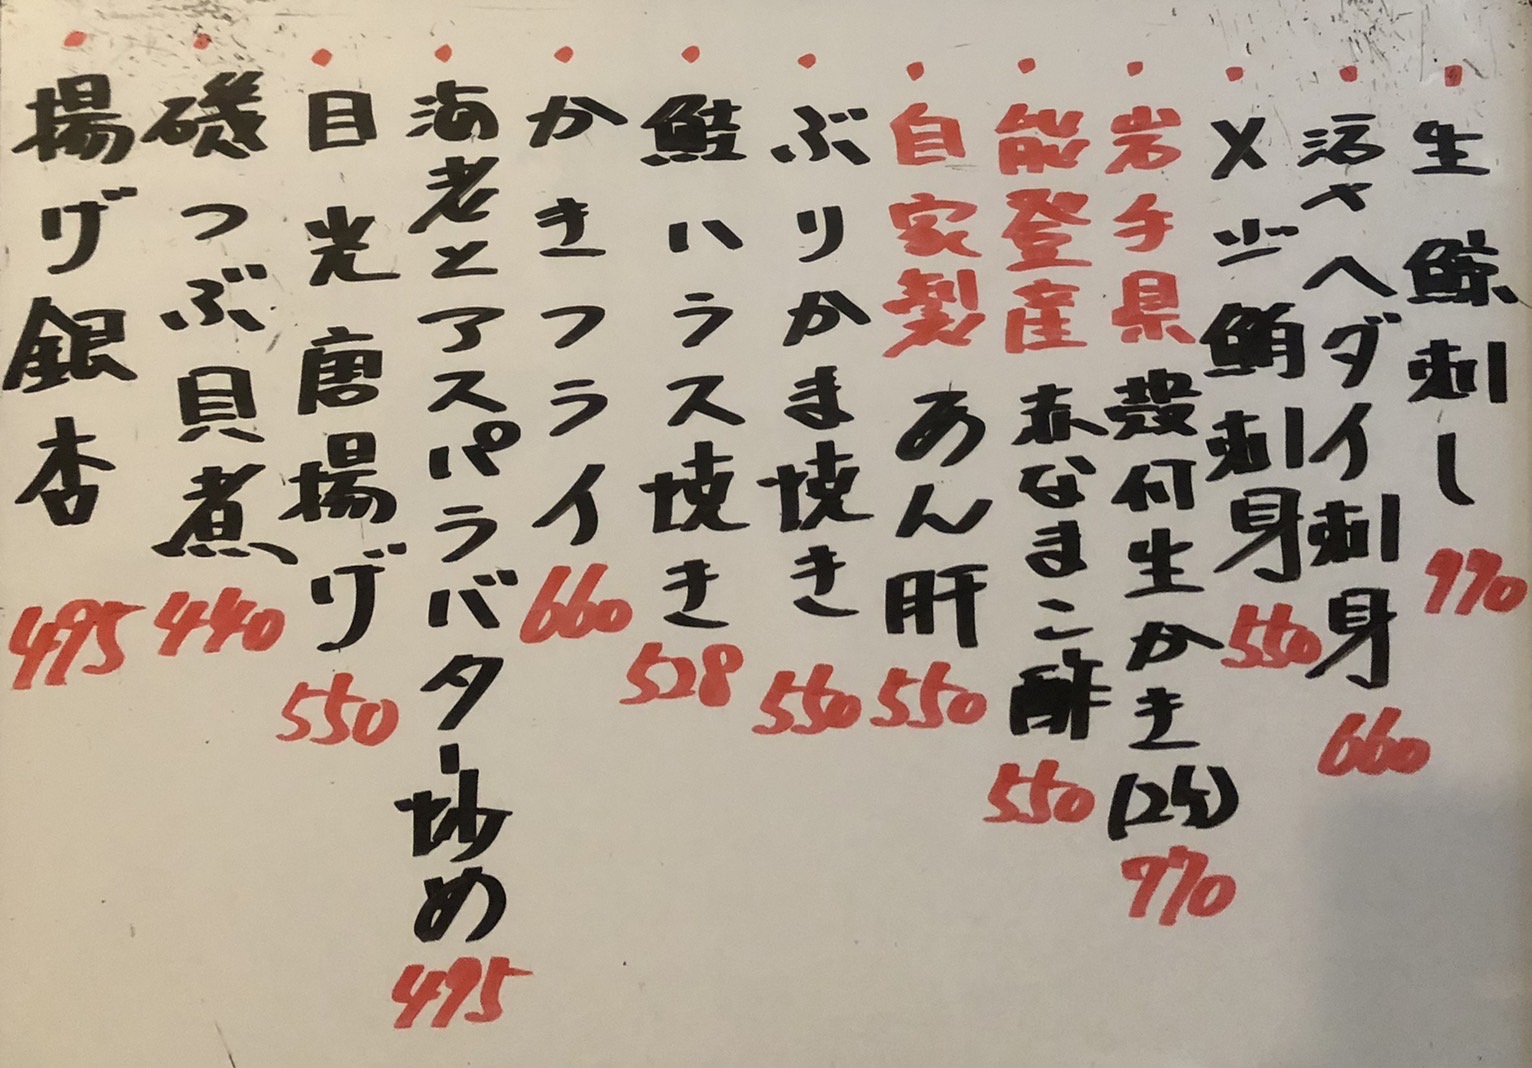 生鯨刺し 770
活〆ヘダイ刺身 660
メジ鮪刺身 550
岩手県 殻付生かき(2ケ) 770
能登産 赤なまこ酢 550
自家製 あん肝 550
ぶりかま焼き 550
鮭ハラス焼き 528
かきフライ 660
海老とアスパラバター炒め 495
目光唐揚げ 550
磯つぶ貝煮 440
揚げ銀杏 495